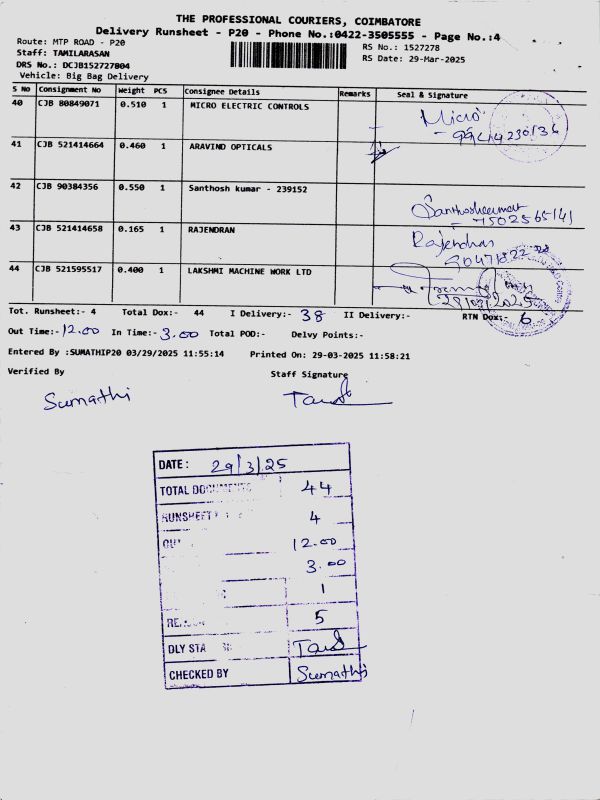 THE PROFESSIONAL COURIERS, COIMBATORE
Delivery Runsheet - P20 - Phone No.:0422-3505555 - Page No.:4
Route: MTP ROAD - P20
Staff: TAMILARASAN
DRS No.: DCJB152727804
Vehicle: Big Bag Delivery
RS No.: 1527278
RS Date: 29-Mar-2025
S No Consignment No Weight PCS Consignee Details Remarks Seal & Signature
40 CJB 80849071 0.510 1 MICRO ELECTRIC CONTROLS Micro
41 CJB 521414664 0.460 1 ARAVIND OPTICALS
42 CJB 90384356 0.550 1 Santhosh kumar - 239152 Santhoshkumar
7502565141
43 CJB 521414658 0.165 1 RAJENDRAN Rajendran
44 CJB 521595517 0.400 1 LAKSHMI MACHINE WORK LTD
29/03/2025
Tot. Runsheet:- 4 Total Dox:- 44 I Delivery:- 38 II Delivery:- RTN Dox:- 6
Out Time:- 12.00 In Time:- 3.00 Total POD:- Delvy Points:-
Entered By :SUMATHIP20 03/29/2025 11:55:14 Printed On: 29-03-2025 11:58:21
Verified By Staff Signature
Sumathi
DATE : 29/3/25
TOTAL DOCUMENTS 44
RUNSHEET 4
OUT 12.00
3.00
1
5
DLY STA
CHECKED BY Sumathi